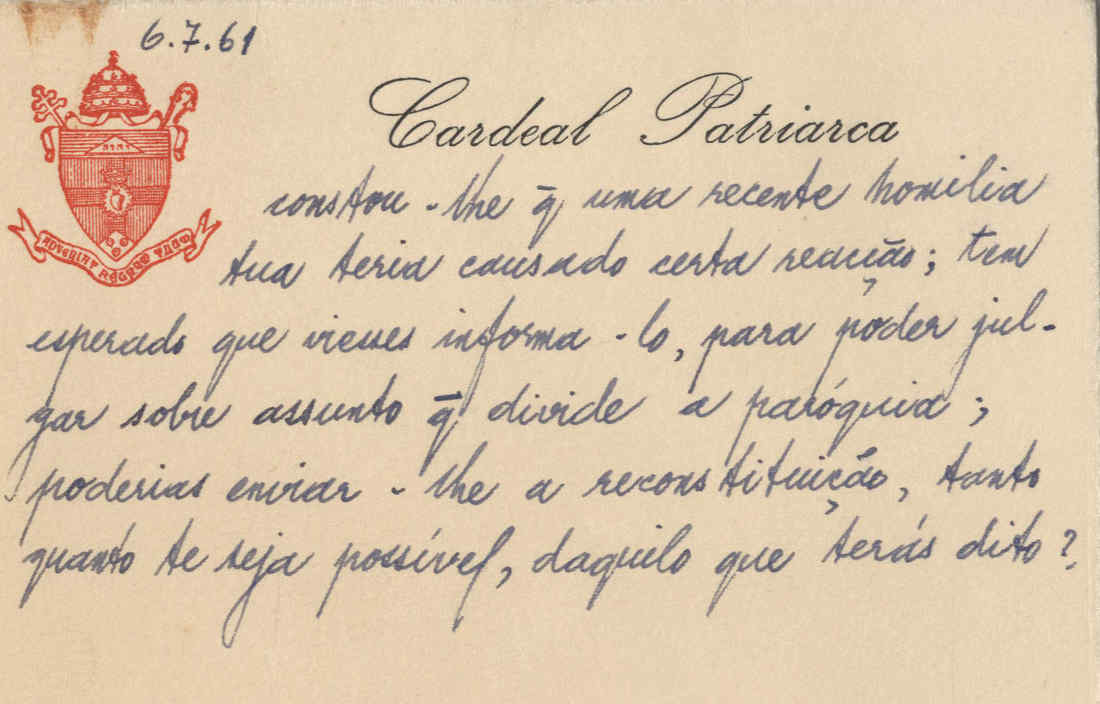 6.7.61
Cardeal Patriarca
constou-lhe q̄ uma recente homilia
tua teria causado certa reacção; tem
esperado que viesses informa-lo, para poder jul-
gar sobre assunto q̄ divide a paróquia;
poderias enviar-lhe a reconstituição, tanto
quanto te seja possível, daquilo que terás dito?
ADVENIAT REGNUM TUUM